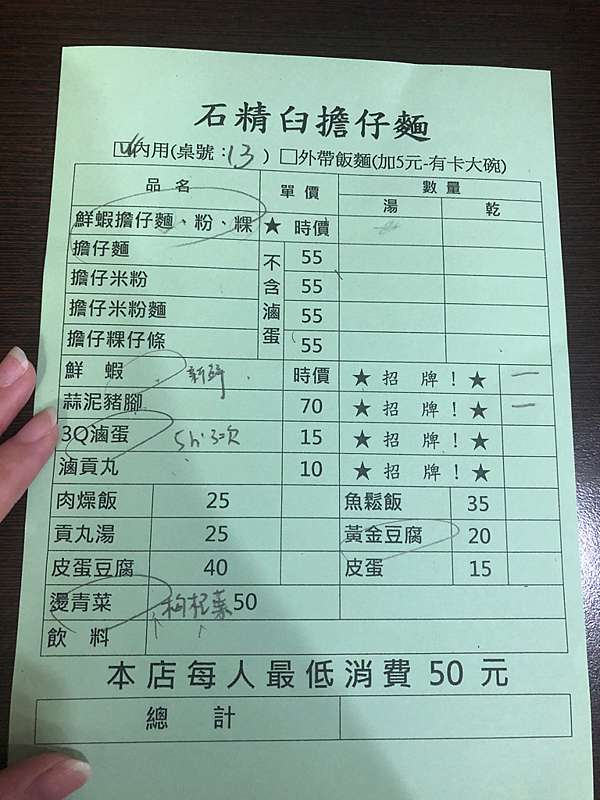 石精臼擔仔麵
☑內用(桌號:13) □外帶飯麵(加5元-有卡大碗)
品名 單價 數量
湯 乾
鮮蝦擔仔麵、粉、粿 ★ 時價
擔仔麵 55
擔仔米粉 55
擔仔米粉麵 55
擔仔粿仔條 55
不含滷蛋
鮮 蝦 時價 ★ 招 牌 ! ★ 一
蒜泥豬腳 70 ★ 招 牌 ! ★ 一
3Q滷蛋 15 ★ 招 牌 ! ★
滷貢丸 10 ★ 招 牌 ! ★
肉燥飯 25 魚鬆飯 35
貢丸湯 25 黃金豆腐 20
皮蛋豆腐 40 皮蛋 15
燙青菜 枸杞葉 50
飲 料
本店每人最低消費 50 元
總 計